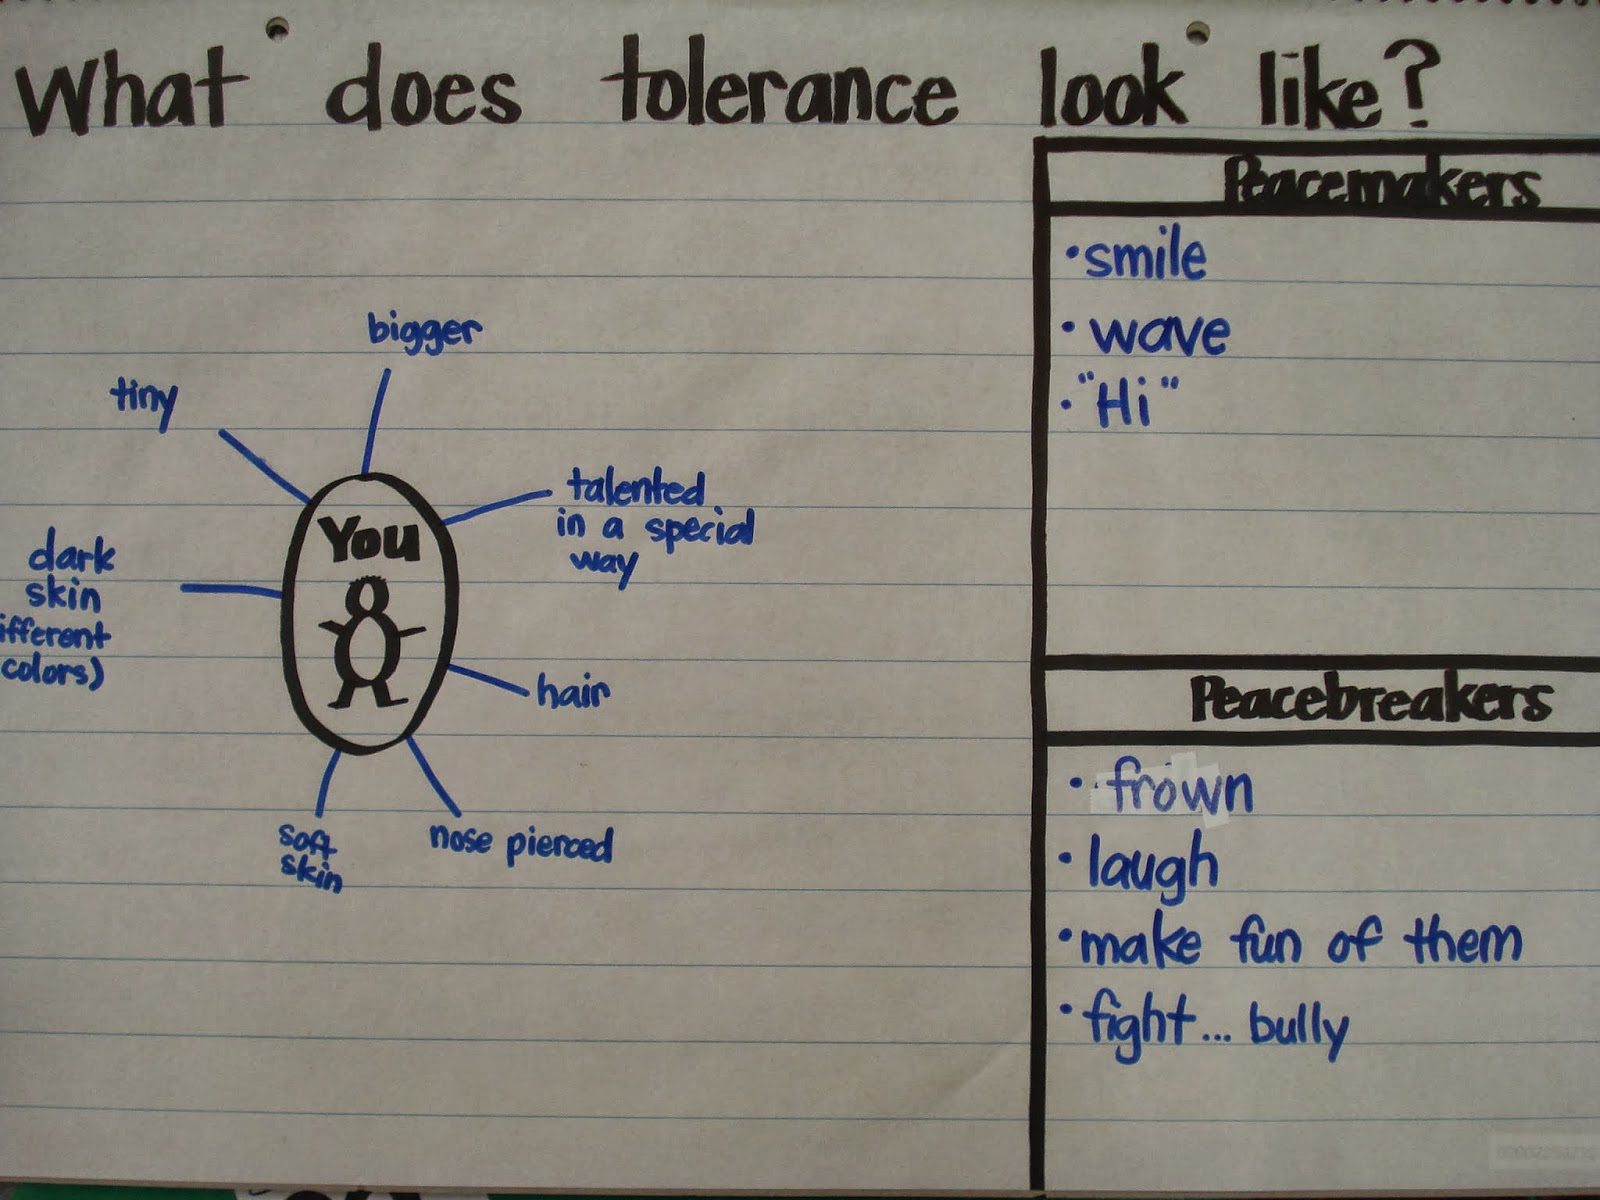 What does tolerance look like?
bigger
tiny
talented
in a special
way
You
dark
skin
ifferent
colors)
hair
soft
skin
nose pierced
Peacemakers
•smile
•wave
•"Hi"
Peacebreakers
•frown
•laugh
•make fun of them
•fight... bully